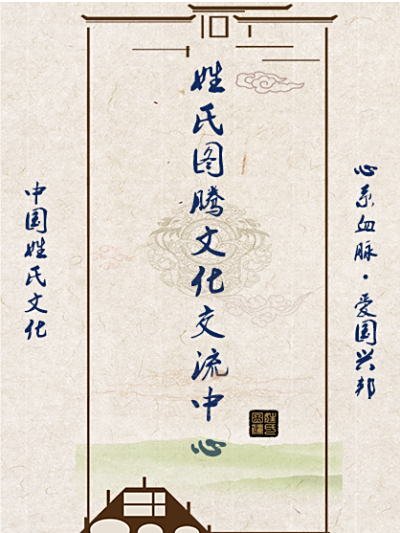 姓氏图腾文化交流中心
心系血脉·爱国兴邦
中国姓氏文化
姓氏
图腾